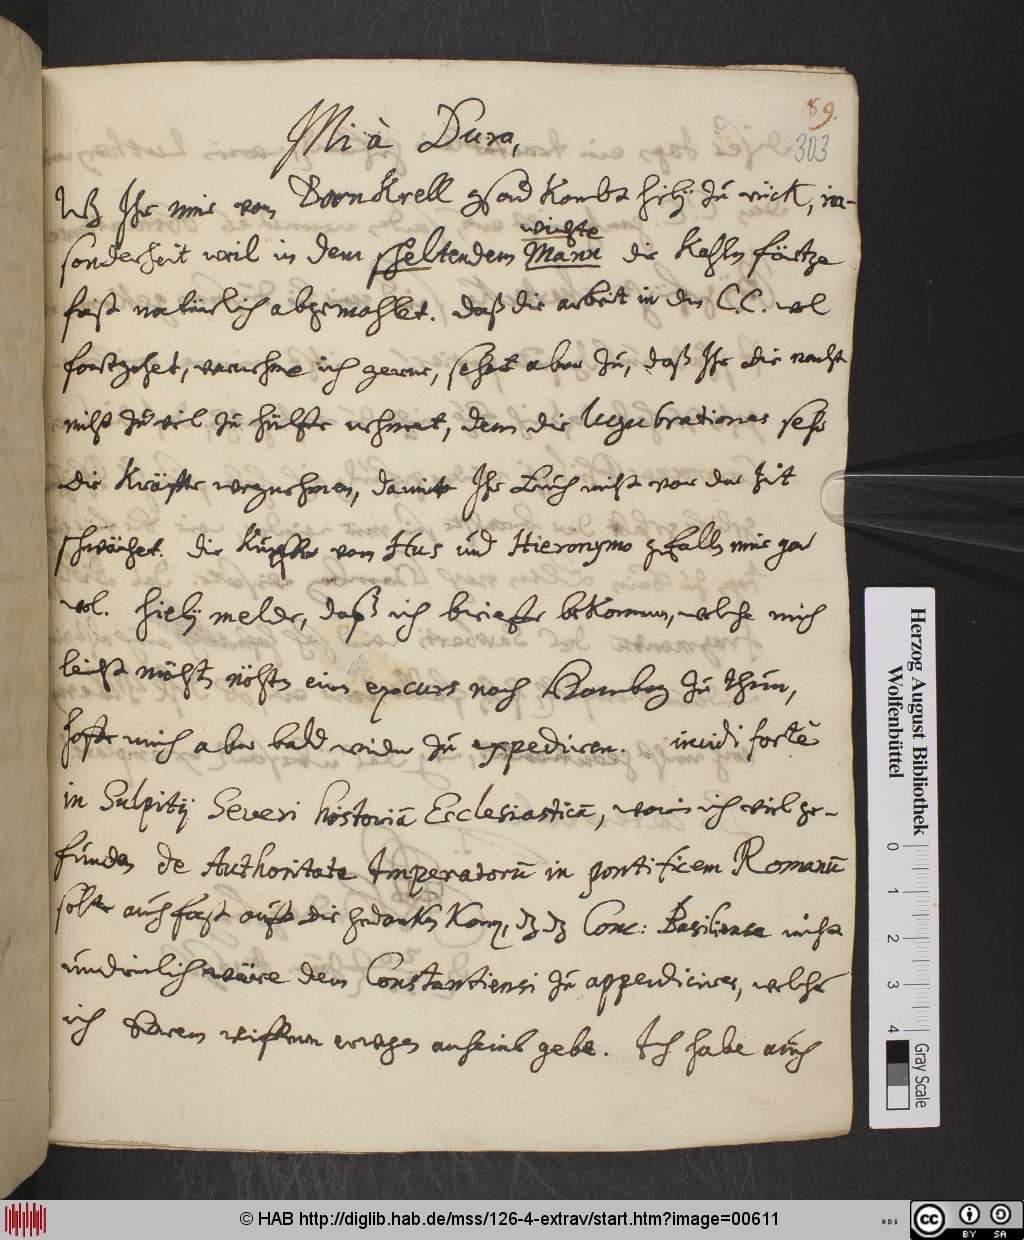 89.
303
Mi à Dura,
Waß Ihr mir vom Dornkrell gsand kombt hibij zu rück, in-
sonderheit weil in dem scheltendem Mann die kahln
wüste
fast natürlich abgemahlet. daß die arbeit in den C.C. wol
fortgehet, vernehme ich gerne, sehet aber zu, daß Ihr die nacht
nicht zu viel zu hülffe nehmet, denn die lugubrationes sehr
die Kräffte wegnehmen, damitt Ihr Euch nicht vor der zeit
schwächet. die Kupffer vom Hus und Hieronymo gefalln mir gar
wol. hiebij melde, daß ich brieffe bekommen, welche mich
leicht möchtn nöhtn einen excurs nach Hamborg zu thun,
hoffe mich aber bald wider zu expediren. incidi fortè
in Sulpitij Severi historiā Ecclesiasticā, worin ich viel ge-
funden de Authoritate Imperatorū in pontificem Romanū
solte auch fast auff die gedankn komen, dz dz Conc: Basiliense nicht
undienlich wäre dem Constantiensi zu appendiciren, welches
ich Ewrem weiteren erwegen anheimb gebe. Ich habe auch
Herzog August Bibliothek
Wolfenbüttel
0 1 2 3 4
Gray Scale
© HAB http://diglib.hab.de/mss/126-4-extrav/start.htm?image=00611
cc BY SA